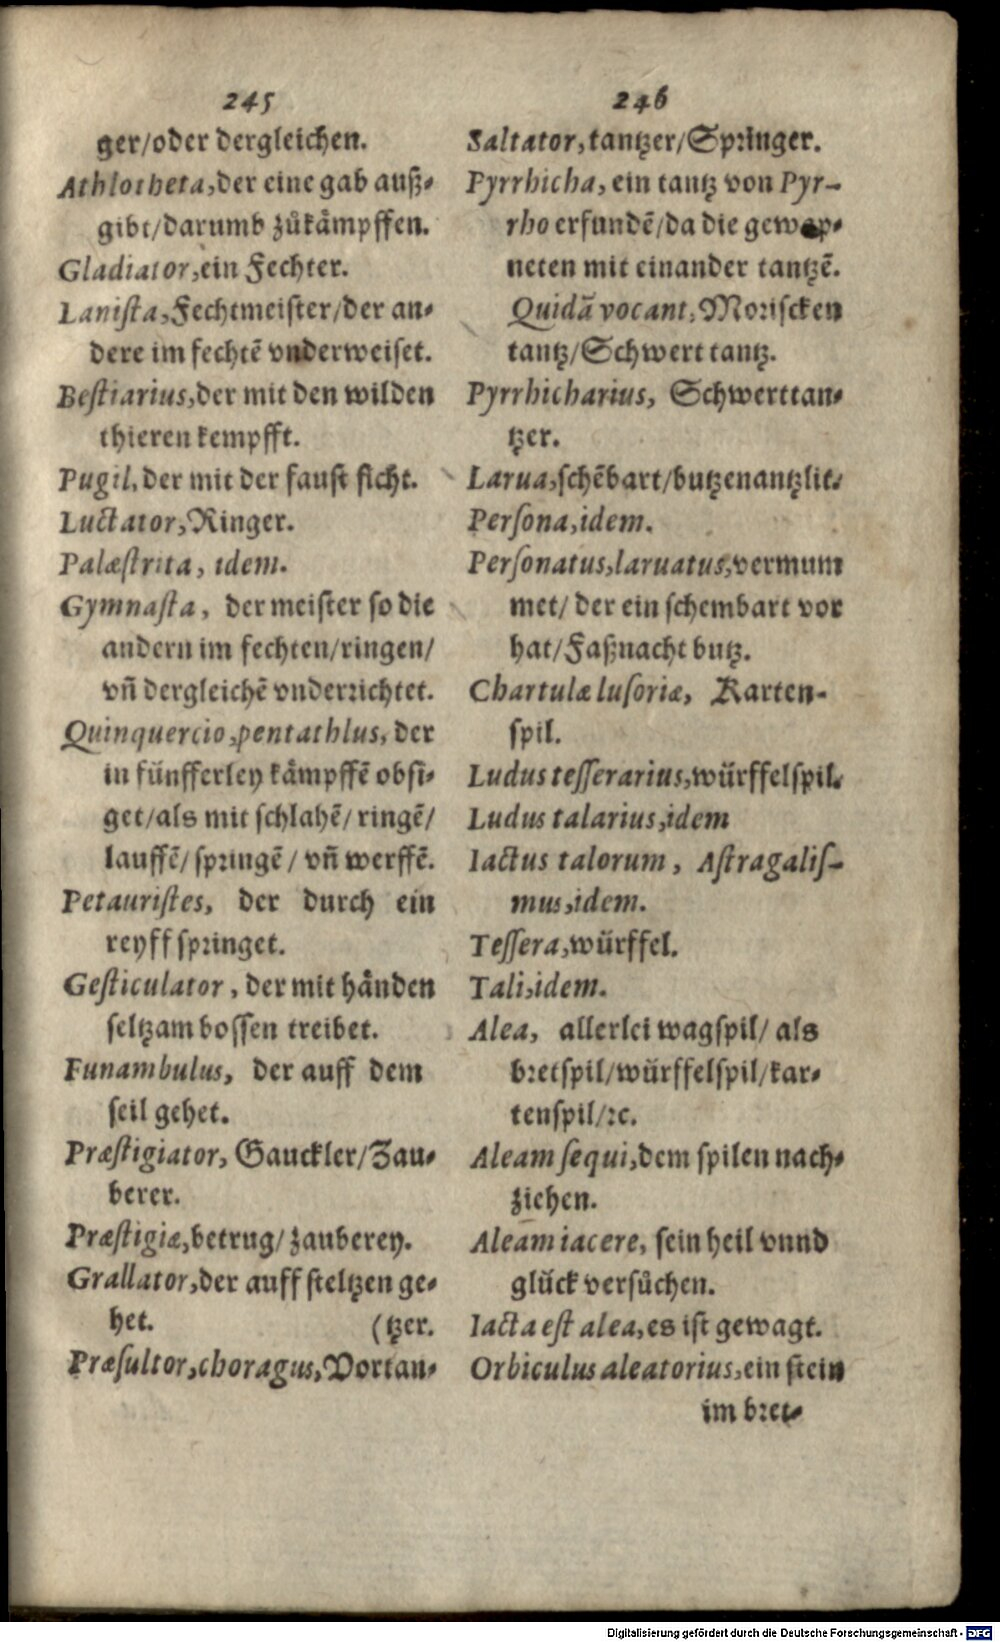 245
ger/oder dergleichen.
Athlotheta,der eine gab auß⸗
gibt/darumb zůkåmpffen.
Gladiator,ein Fechter.
Lanista,Fechtmeister/der an⸗
dere im fechtē vnderweiset.
Bestiarius,der mit den wilden
thieren kempfft.
Pugil,der mit der faust ficht.
Luctator,Ringer.
Palæstrita, idem.
Gymnasta, der meister so die
andern im fechten/ringen/
vñ dergleichē vnderrichtet.
Quinquercio,pentathlus, der
in fünfferley kåmpffē obsi⸗
get/als mit schlahē/ ringē/
lauffē/ springē / vñ werffē.
Petauristes, der durch ein
reyff springet.
Gesticulator, der mit hånden
seltzam bossen treibet.
Funambulus, der auff dem
seil gehet.
Præstigiator, Gauckler/Zau⸗
berer.
Præstigiæ,betrug/ zauberey.
Grallator,der auff steltzen ge⸗
het. (tzer.
Præsultor,choragus,Vortan⸗
246
Saltator,tantzer/Springer.
Pyrrhicha, ein tantz von Pyr-
rho erfundē/da die gewap⸗
neten mit einander tantzē.
Quidā vocant,Moriscken
tantz/Schwert tantz.
Pyrrhicharius, Schwerttan⸗
tzer.
Larua,schēbart/butzenantzlit.
Persona,idem.
Personatus,laruatus,vermum
met/ der ein schembart vor
hat/Faßnacht butz.
Chartulæ lusoriæ, Karten-
spil.
Ludus tesserarius,würffelspil.
Ludus talarius,idem
Iactus talorum, Astragalis-
mus,idem.
Tessera,würffel.
Tali,idem.
Alea, allerlei wagspil/ als
bretspil/würffelspil/kar⸗
tenspil/ꝛc.
Aleam sequi,dem spilen nach⸗
ziehen.
Aleam iacere, sein heil vnnd
glück versůchen.
Iacta est alea,es ist gewagt.
Orbiculus aleatorius,ein stein
im bret⸗
Digitalisierung gefördert durch die Deutsche Forschungsgemeinschaft - DFG